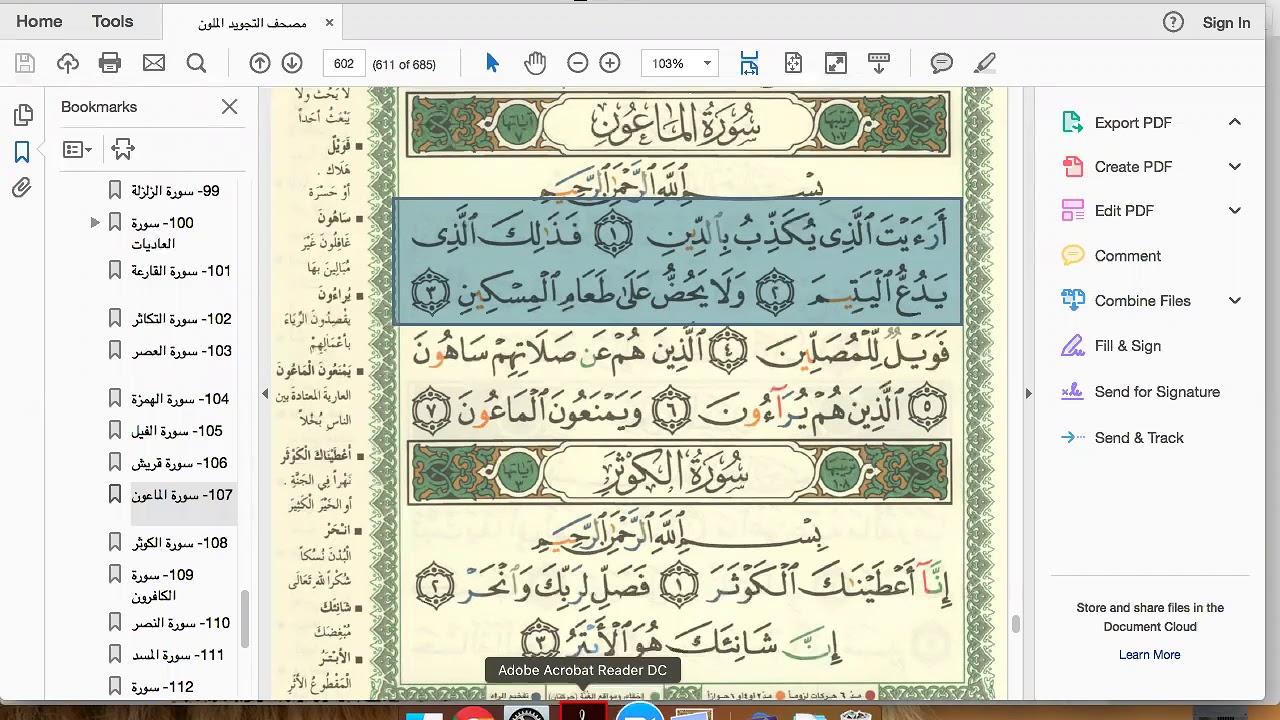 Home
Tools
مصحف التجويد الملون
Sign In
602
(611 of 685)
103%
Bookmarks
99- سورة الزلزلة
100- سورة
العاديات
101- سورة القارعة
102- سورة التكاثر
103- سورة العصر
104- سورة الهمزة
105- سورة الفيل
106- سورة قريش
107- سورة الماعون
108- سورة الكوثر
109- سورة
الكافرون
110- سورة النصر
111- سورة المسد
112- سورة
لا يحث ولا
يبعث أحداً
فَوَيْلٌ
هلاك .
أو حسرة
سَاهُونَ
غافلون غير
مبالين بها
يُرَاءُونَ
يقصدون الرياء
بأعمالهم
يَمْنَعُونَ الْمَاعُونَ
العارية المعتادة بين
الناس بخلاً
أَعْطَيْنَاكَ الْكَوْثَرَ
نهراً في الجنة .
أو الخير الكثير
انْحَرْ
البدن نسكاً
شكراً لله تعالى
شَانِئَكَ
مبغضك
الأَبْتَرُ
المقطوع الأثر
ترتيبها ١٠٧
سُورَةُ الْمَاعُونِ
آياتها ٧
بِسْمِ اللَّهِ الرَّحْمَٰنِ الرَّحِيمِ
أَرَءَيْتَ الَّذِى يُكَذِّبُ بِالدِّينِ ١ فَذَٰلِكَ الَّذِى
يَدُعُّ الْيَتِيمَ ٢ وَلَا يَحُضُّ عَلَىٰ طَعَامِ الْمِسْكِينِ ٣
فَوَيْلٌ لِّلْمُصَلِّينَ ٤ الَّذِينَ هُمْ عَن صَلَاتِهِمْ سَاهُونَ
٥ الَّذِينَ هُمْ يُرَآءُونَ ٦ وَيَمْنَعُونَ الْمَاعُونَ ٧
ترتيبها ١٠٨
سُورَةُ الْكَوْثَرِ
آياتها ٣
بِسْمِ اللَّهِ الرَّحْمَٰنِ الرَّحِيمِ
إِنَّآ أَعْطَيْنَٰكَ الْكَوْثَرَ ١ فَصَلِّ لِرَبِّكَ وَانْحَرْ ٢
إِنَّ شَانِئَكَ هُوَ الْأَبْتَرُ ٣
Adobe Acrobat Reader DC
Export PDF
Create PDF
Edit PDF
Comment
Combine Files
Fill & Sign
Send for Signature
Send & Track
Store and share files in the
Document Cloud
Learn More